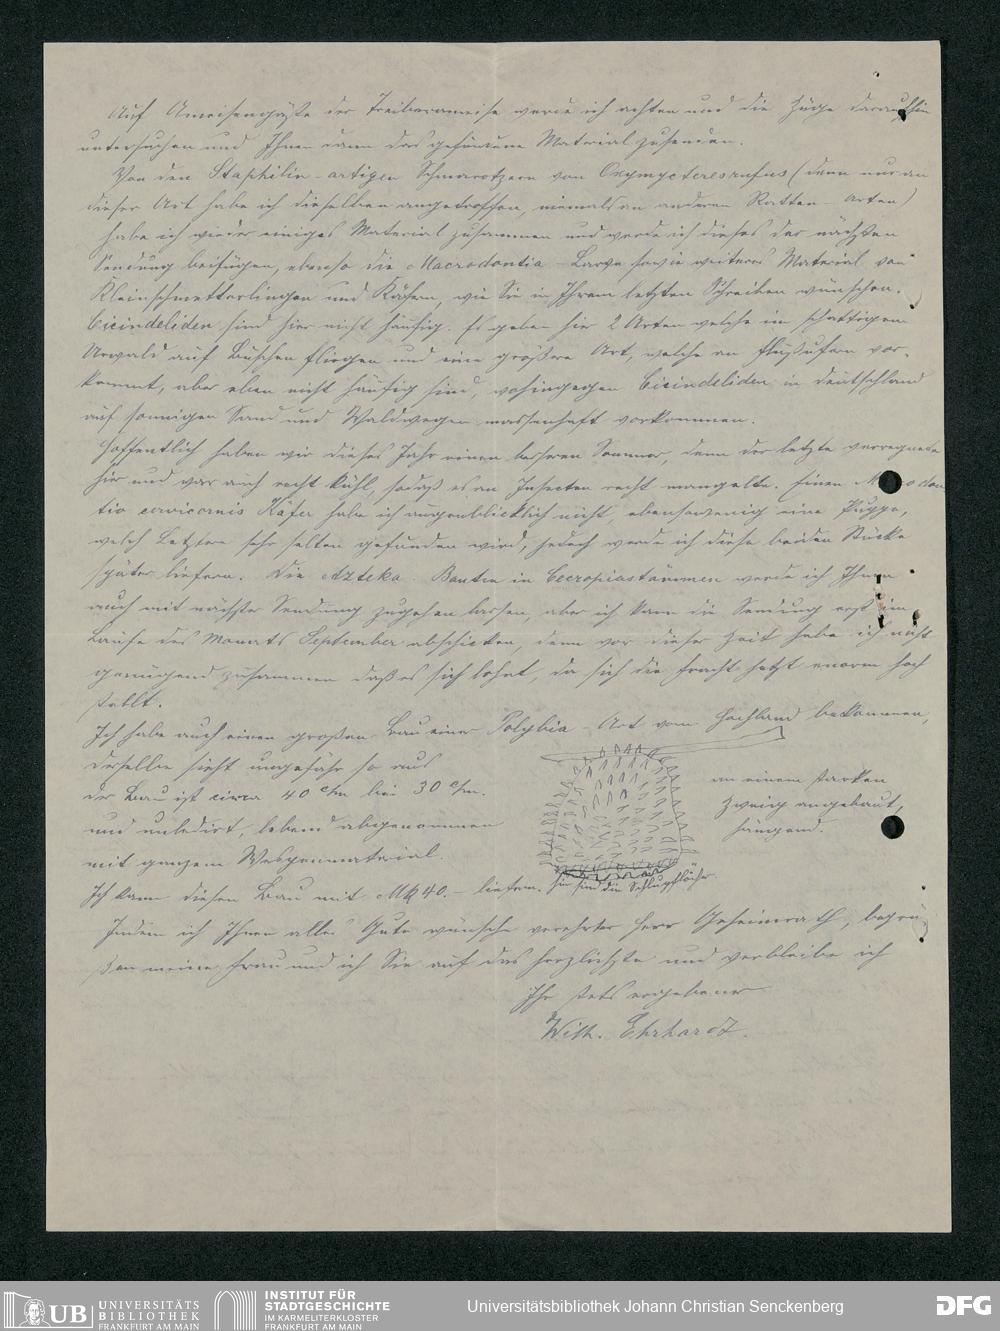 Auf Ameisengäste der Treiberameise werde ich achten und die Züge daraufhin
untersuchen und Ihnen dann das gefundene Material zusenden.
Von den Staphilin-artigen Schmarotzern von Oxymycteres rufus (denn nur an
dieser Art habe ich dieselben angetroffen, niemals an anderen Ratten-Arten)
habe ich wieder einiges Material zusammen und werde ich dieses der nächsten
Sendung beifügen, ebenso die Macrodontia-Larve sowie weiteres Material von
Kleinschmetterlingen und Käfern, wie Sie in Ihrem letzten Schreiben wünschen.
Cicindeliden sind hier nicht häufig. Es geben hier 2 Arten welche im schattigen
Urwald auf Büschen fliegen und eine größere Art, welche an Flußufern vor-
kommt, aber eben nicht häufig sind, wohingegen Cicindeliden in Deutschland
auf sonnigen Sand und Waldwegen massenhaft vorkommen.
Hoffentlich haben wir dieses Jahr einen besseren Sommer, denn der letzte verregnete
hier und war auch recht kühl, sodaß es an Insecten recht mangelte. Einen M odon
tia cervicornis Käfer habe ich augenblicklich nicht, ebensowenig eine Puppe,
welch Letztere sehr selten gefunden wird, jedoch werde ich diese beiden Stücke
später liefern. Die Azteka Bauten in Cecropiastämmen werde ich Ihnen
auch mit nächster Sendung zugehen lassen, aber ich kann die Sendung erst im
Laufe des Monats September abschicken, denn vor dieser Zeit habe ich nicht
genügend zusammen daß es sich lohnt, da sich die Fracht jetzt enorm hoch
stellt.
Ich habe auch einen großen Bau einer Polybia-Art vom Hochland bekommen,
derselbe sieht ungefähr so aus
an einem starken
der Bau ist circa 40 c/m bei 30 c/m.
Zweig angebaut,
und unlädirt, lebend abgenommen
hängend.
mit ganzem Wespenmaterial.
Ich kann diesen Bau mit Mk 40.- liefern.
hier sind die Schlupflöcher
Indem ich Ihnen alles Gute wünsche verehrter Herr Geheimrath, begrü
ßen meine Frau und ich Sie auf das herzlichste und verbleibe ich
Ihr stets ergebener
Wilh. Ehrhardt.
UB UNIVERSITÄTS
BIBLIOTHEK
FRANKFURT AM MAIN
INSTITUT FÜR
STADTGESCHICHTE
IM KARMELITERKLOSTER
FRANKFURT AM MAIN
Universitätsbibliothek Johann Christian Senckenberg
DFG